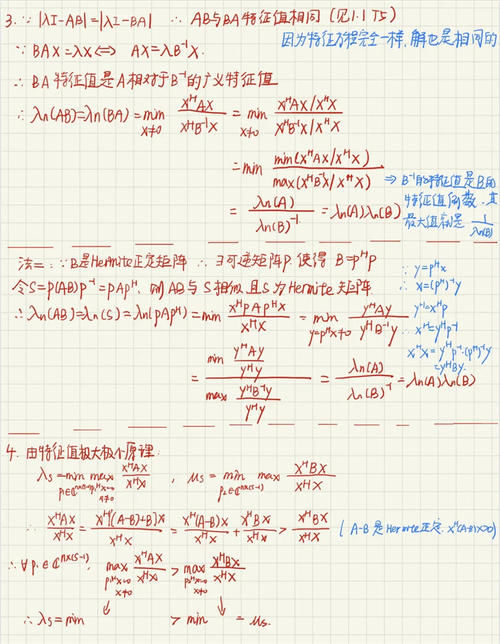 3. ∵ |λI-AB|=|λI-BA| ∴ AB与BA特征值相同 (见1.1 T5)
因为特征方程完全一样,解也是相同的
∵ BAX=λX ⟺ AX=λB⁻¹X.
∴ BA特征值是A相对于B⁻¹的广义特征值
∴ λn(AB)=λn(BA)=min x≠0 xᴴAx / xᴴB⁻¹x = min x≠0 (xᴴAx/xᴴx) / (xᴴB⁻¹x/xᴴx)
= min min(xᴴAx/xᴴx) / max(xᴴB⁻¹x/xᴴx)
⇒ B⁻¹的特征值是B的
特征值倒数.其
最大值则是 1/λn(B)
= λn(A) / λn(B)⁻¹ = λn(A)λn(B)
法二: ∵ B是Hermite正定矩阵 ∴ ∃可逆矩阵P. 使得 B=PᴴP
令S=P(AB)P⁻¹=PAPᴴ, 则AB与S相似且S为Hermite矩阵.
∴ λn(AB)=λn(S)=λn(PAPᴴ)=min xᴴPAPᴴx / xᴴx = min y=Pᴴx≠0 yᴴAy / yᴴB⁻¹y
= min yᴴAy/yᴴy / max yᴴB⁻¹y/yᴴy = λn(A) / λn(B)⁻¹ = λn(A)λn(B)
∵ y=Pᴴx
∴ x=(Pᴴ)⁻¹y
yᴴ=xᴴP
xᴴ=yᴴP⁻¹
xᴴx=yᴴP⁻¹·(Pᴴ)⁻¹y
=yᴴBy.
4. 由特征值极大极小原理:
λs=min max xᴴAx / xᴴx , μs=min max xᴴBx / xᴴx
∵ xᴴAx / xᴴx = xᴴ[(A-B)+B]x / xᴴx = xᴴ(A-B)x / xᴴx + xᴴBx / xᴴx > xᴴBx / xᴴx (A-B是Hermite正定. xᴴ(A-B)x>0)
∴ ∀P₁∈ℂⁿˣ⁽ˢ⁻¹⁾, max xᴴAx / xᴴx > max xᴴBx / xᴴx
∴ λs=min ↓ > min ↓ = μs.